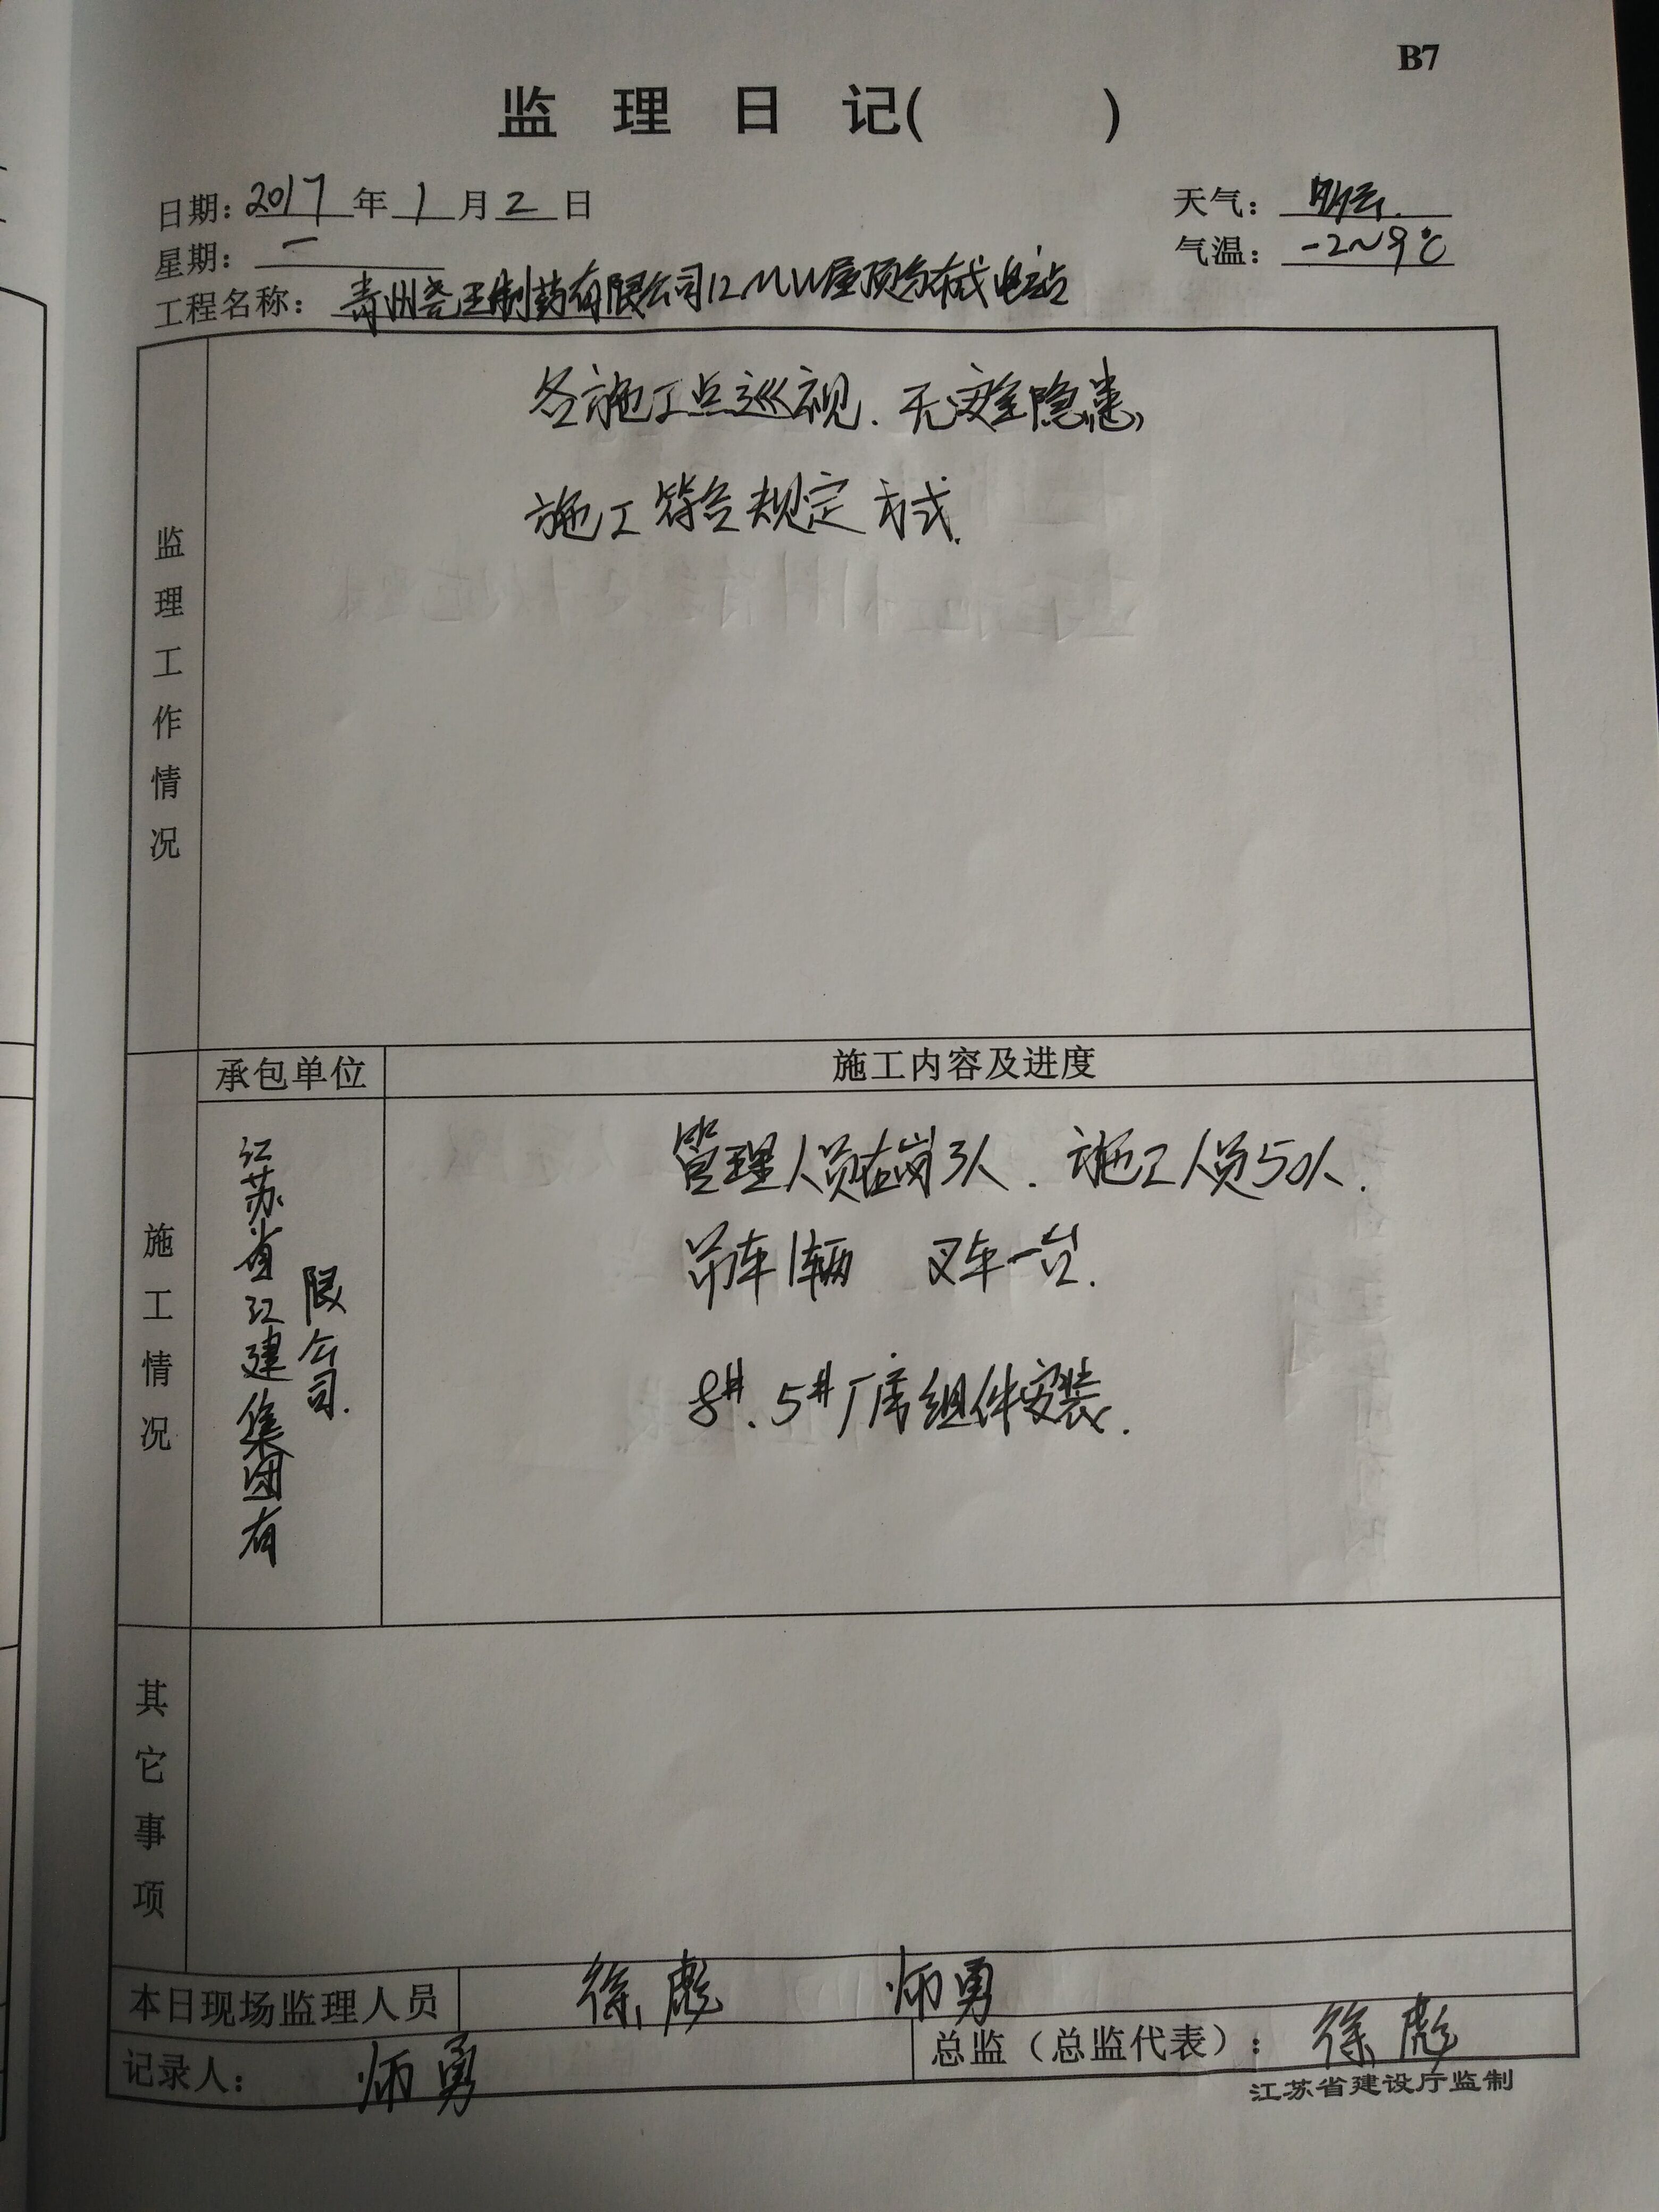 B7
监 理 日 记(          )
日期: 2017 年 1 月 2 日
天气:
星期: 一
气温: -2~9℃
工程名称: 青州尧王制药有限公司12MW屋顶分布式电站
监理工作情况
各施工点巡视. 无安全隐患,
施工符合规定方式.
承包单位
施工内容及进度
施工情况
江苏省江建集团有
限公司.
管理人员在岗3人. 施工人员50人.
吊车1辆 叉车一台.
8#、5#厂房组件安装.
其它事项
本日现场监理人员 徐彪 师勇
记录人: 师勇
总监(总监代表): 徐彪
江苏省建设厅监制